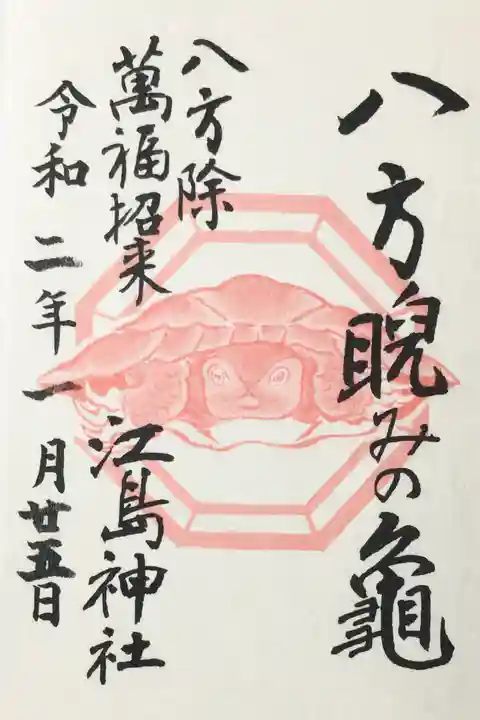 八方睨みの龜
八方除
萬福招来
江島神社
令和二年一月廿五日